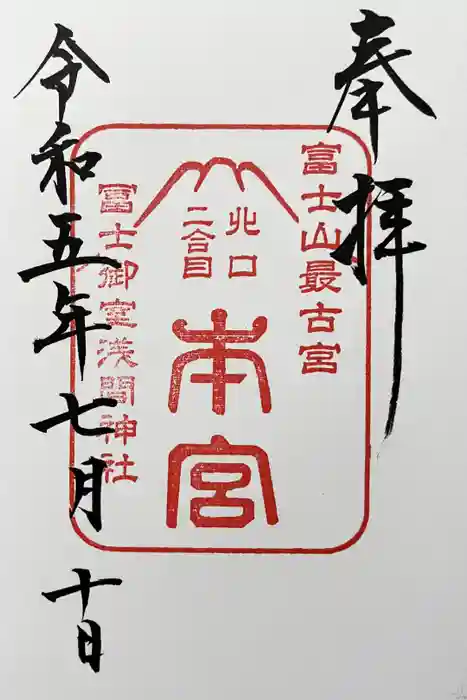 奉拝
富士山最古宮
北口
二合目
本宮
冨士御室浅間神社
令和五年七月十日